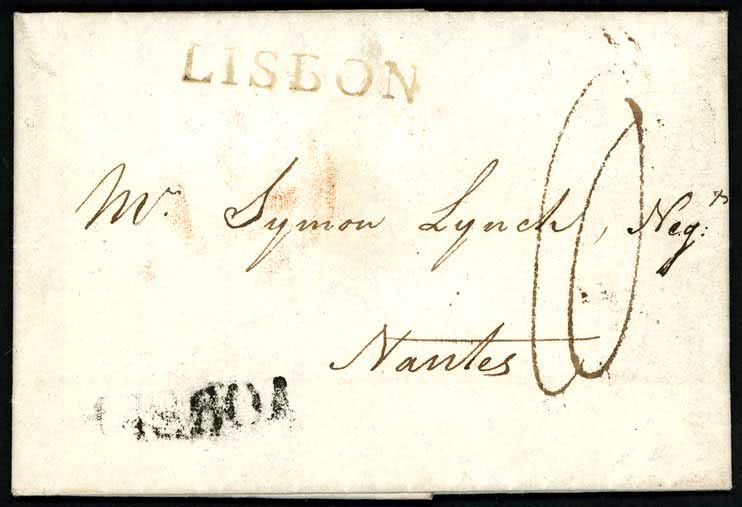 LISBON
Mr. Symon Lynch, Negt:
Nantes
LISBOA